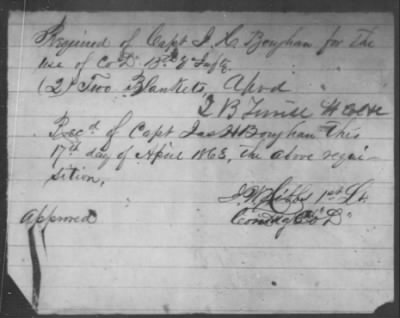 Required of Capt J. H. Boughan for the
use of Co D 13th
(2) Two Blankets,
Recd of Capt Jas H Boughan this
17th day of April 1863, the above requi-
sition,
1st Lt
Comdg Co "D"
Approved